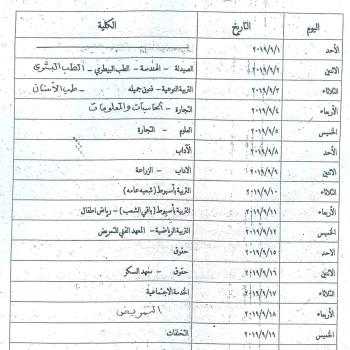 اليوم التاريخ الكلية
الأحد ٢٠١٩/٩/١
الاثنين ٢٠١٩/٩/٢ الصيدلة - الهندسة - الطب البيطري - الطب البشرى
الثلاثاء ٢٠١٩/٩/٣ التربية النوعية - فنون جميله - طب الأسنان
الأربعاء ٢٠١٩/٩/٤ التجارة - الحاسبات والمعلومات
الخميس ٢٠١٩/٩/٥ العلوم - التجارة
الأحد ٢٠١٩/٩/٨ الآداب
الاثنين ٢٠١٩/٩/٩ الاداب - الزراعة
الثلاثاء ٢٠١٩/٩/١٠ التربية بأسيوط (شعبه عامه)
الأربعاء ٢٠١٩/٩/١١ التربية بأسيوط (باقي الشعب) - رياض اطفال
الخميس ٢٠١٩/٩/١٢ التربية الرياضية - المعهد الفني للتمريض
الاحد ٢٠١٩/٩/١٥ حقوق
الاثنين ٢٠١٩/٩/١٦ حقوق - معهد السكر
الثلاثاء ٢٠١٩/٩/١٧ الخدمة الاجتماعية
الأربعاء ٢٠١٩/٩/١٨ التمريض
الخميس ٢٠١٩/٩/١٩ التخلفات